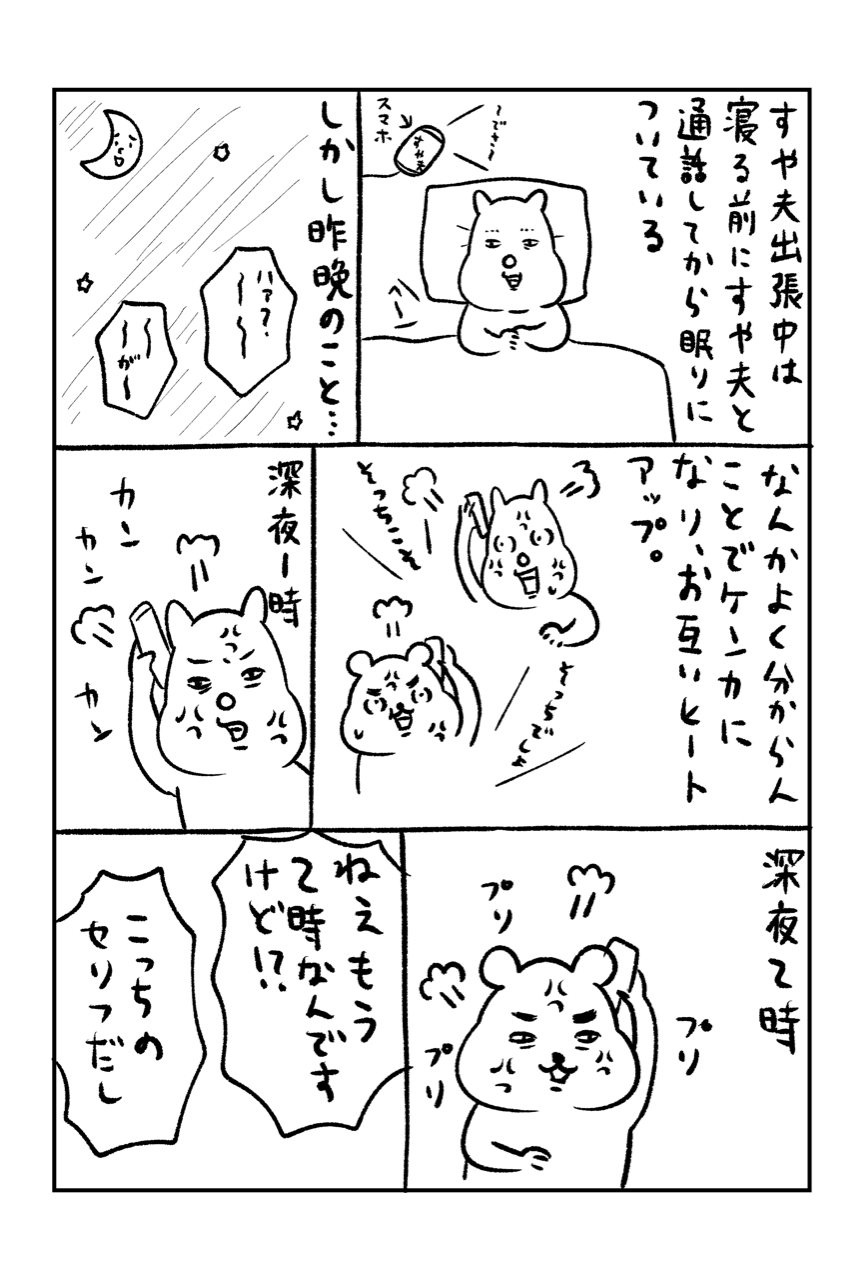 すや夫出張中は
寝る前にすや夫と
通話してから眠りに
ついている
〜でさ〜
スマホ
すや夫
へ〜
しかし昨晩のこと…
ハァ?
〜〜
〜〜が〜
なんかよく分からん
ことでケンカに
なり、お互いヒート
アップ。
そっちこそ
そっちでしょ
深夜1時
カン
カン
カン
深夜2時
プリ
プリ
プリ
ねえもう
2時なんです
けど!?
こっちの
セリフだし